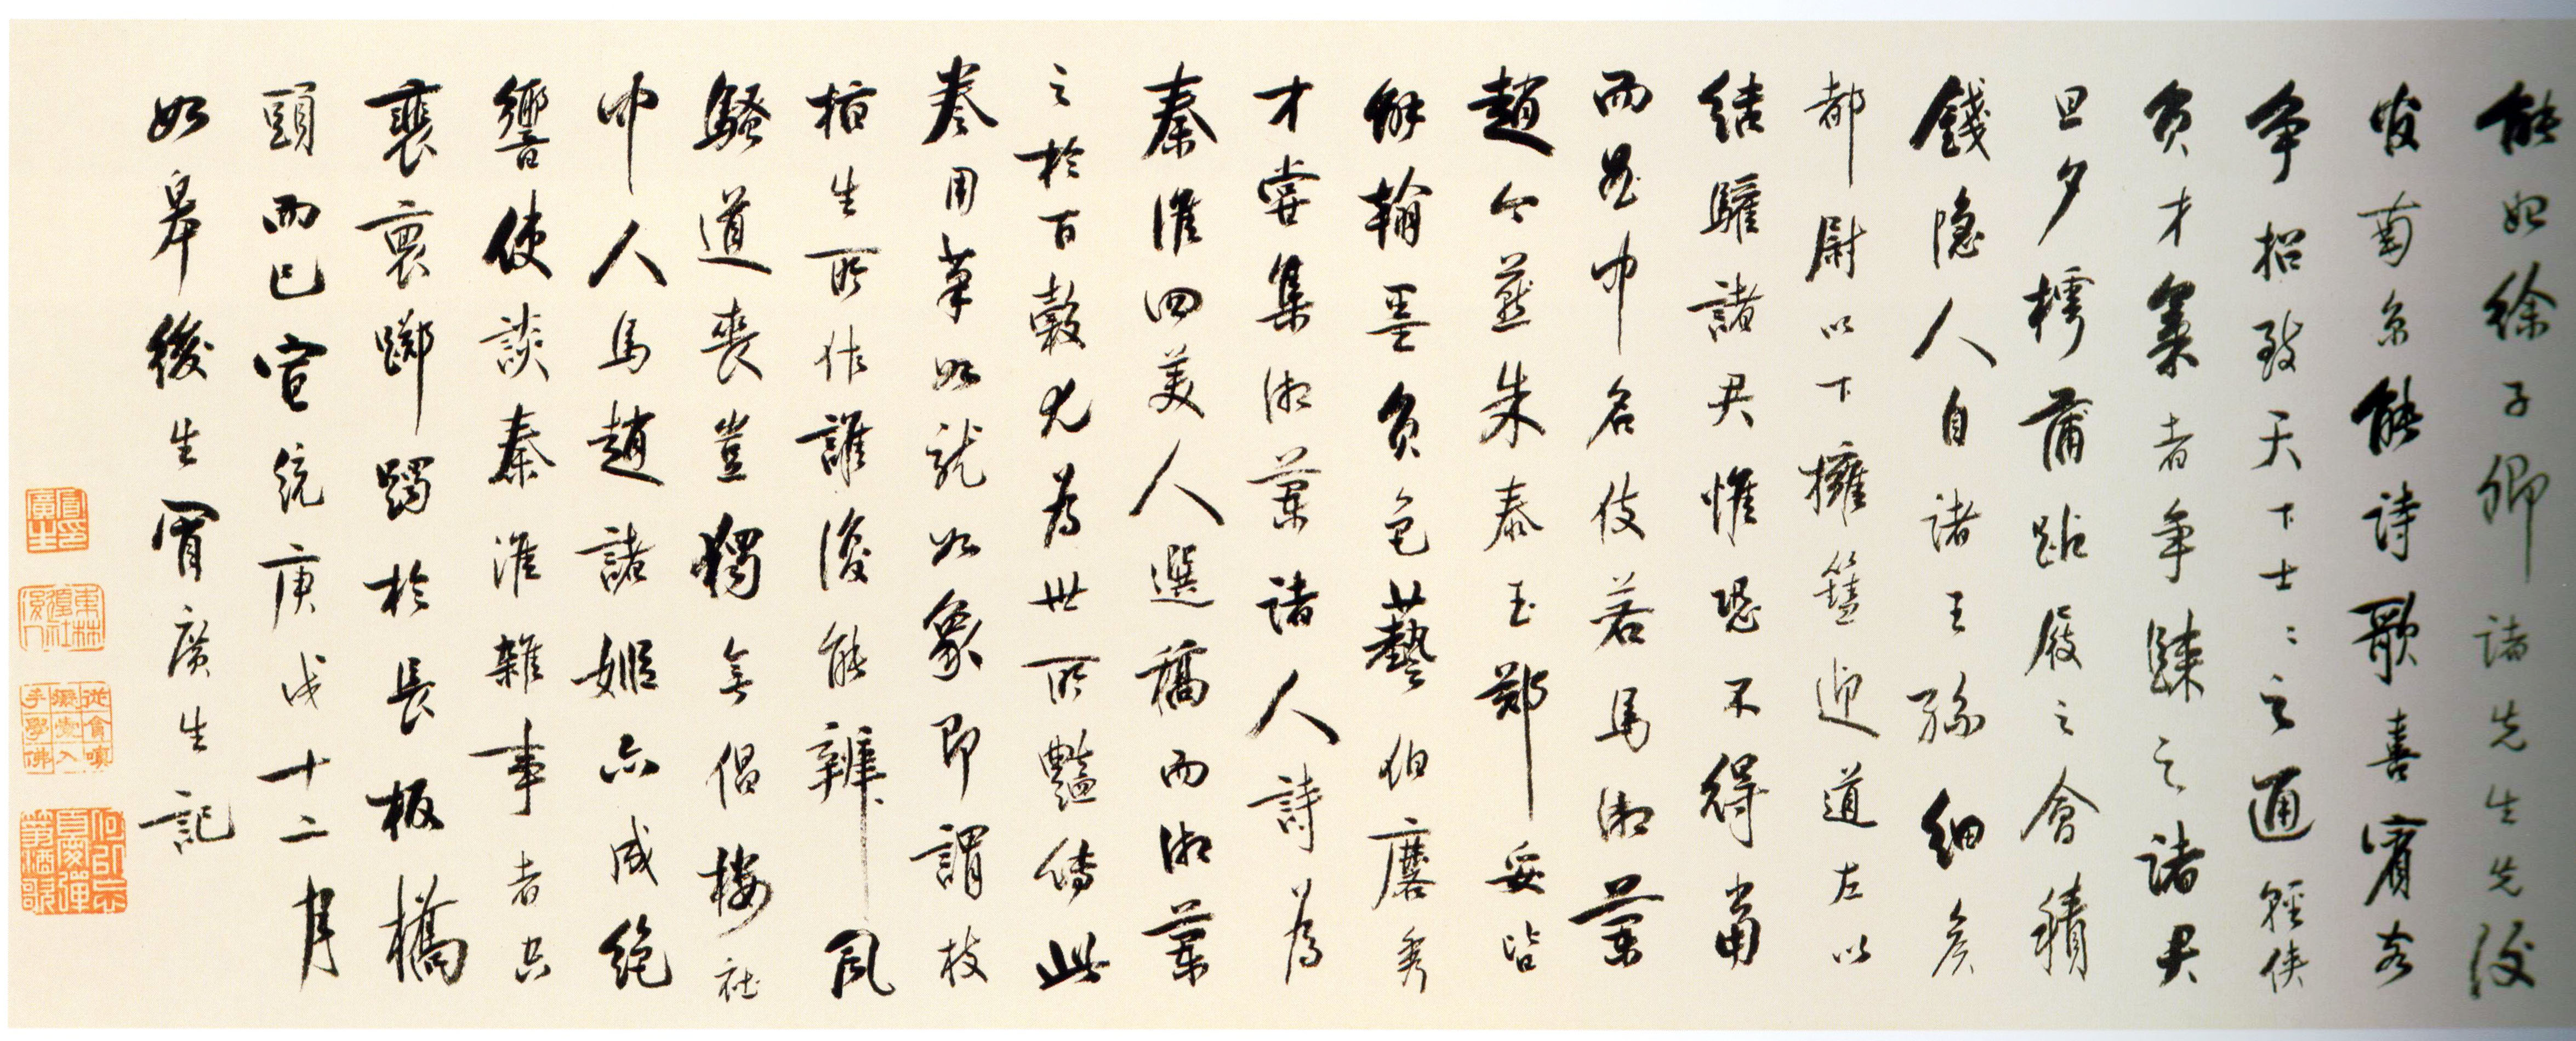 能如徐子卿諸先生先後
省能詩歌喜賓客
爭招致天下士〻之通輕俠
負才氣者爭歸之諸君
旦夕樗蒲跕屣之會積
錢隱人自諸王孫細矣
都尉以下擁篲迎道左以
結驩諸君惟恐不得當
而中名伎若馬湘蘭
趙今燕朱泰玉鄭妥皆
解翰墨負色藝伯麐秀
才嘗集湘蘭諸人詩為
秦淮四美人選稿而湘蘭
之於百穀尤為世所豔傳此
卷用筆如龍如象即謂枝
指生所作誰復能辨風
騷道喪豈獨無倡樓社
中人馬趙諸姬亦成絕
響使談秦淮雜事者亦
裵裏躑躅於長板橋
頭而已宣統庚戌十二月
如皋後生冒廣生記
冒廣生印